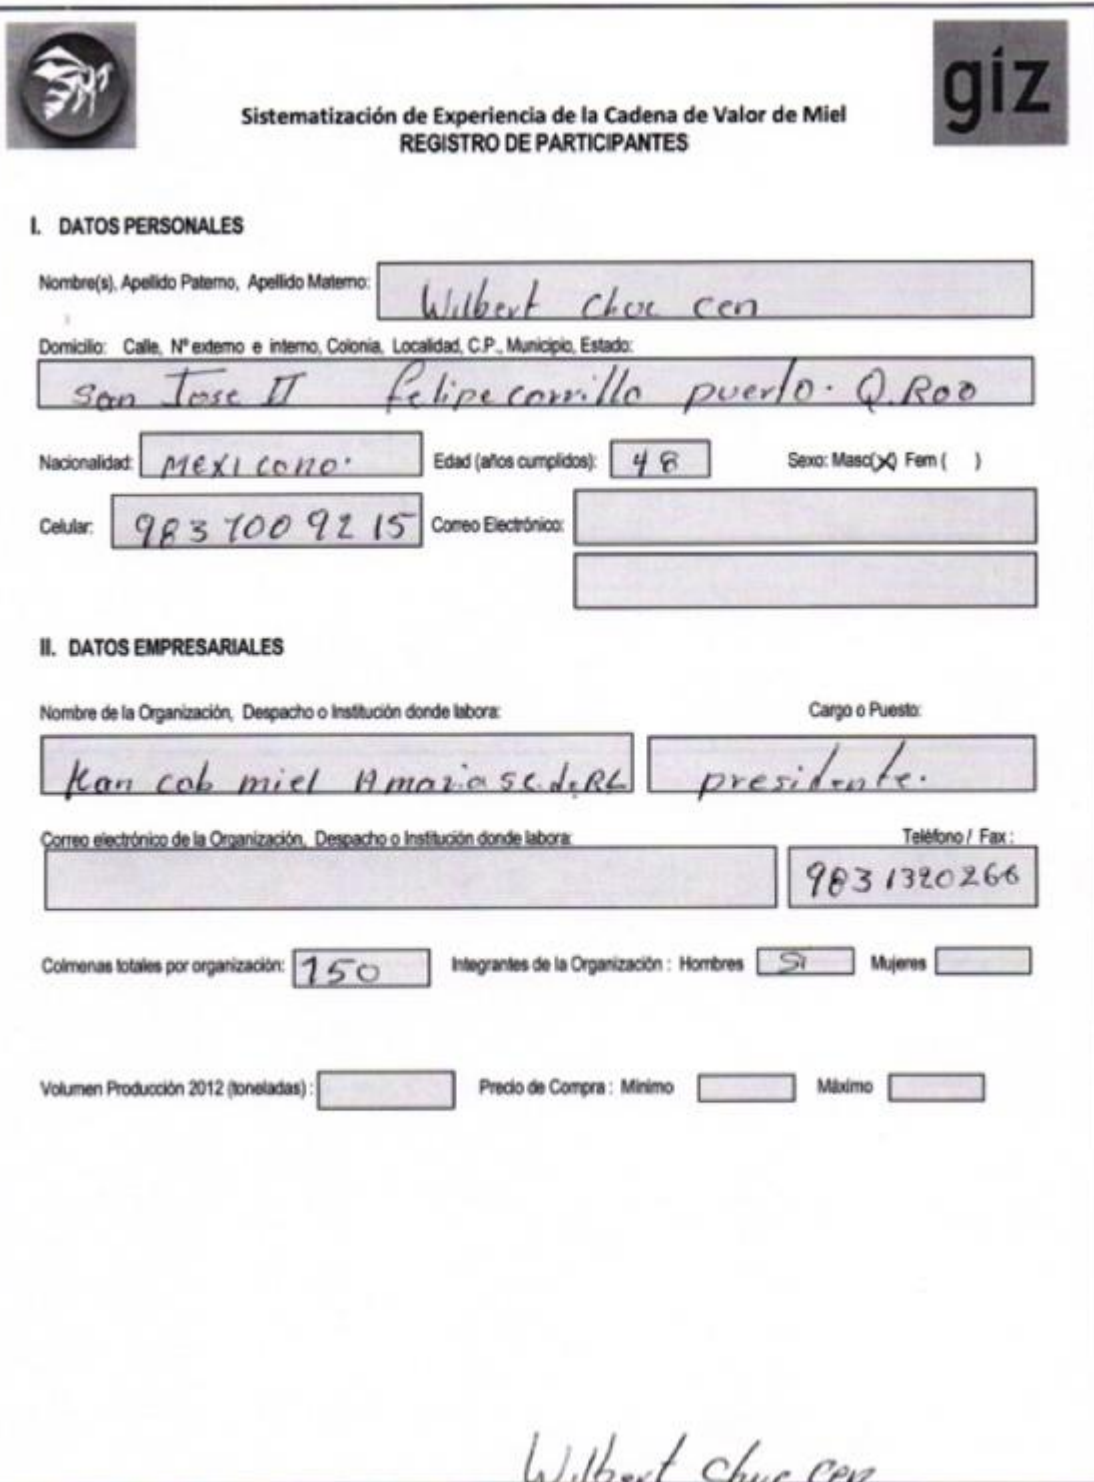 giz
Sistematización de Experiencia de la Cadena de Valor de Miel
REGISTRO DE PARTICIPANTES
I. DATOS PERSONALES
Nombre(s), Apellido Paterno, Apellido Materno: Wilbert Chuc cen
Domicilio: Calle, Nº externo e interno, Colonia, Localidad, C.P., Municipio, Estado:
San Jose II felipe carrillo puerto. Q.Roo
Nacionalidad: Mexicano. Edad (años cumplidos): 48 Sexo: Masc(X) Fem ( )
Celular: 983 700 92 15 Correo Electrónico:
II. DATOS EMPRESARIALES
Nombre de la Organización, Despacho o Institución donde labora: Cargo o Puesto:
Kan cab miel Amaria s.c. de RL presidente.
Correo electrónico de la Organización, Despacho o Institución donde labora: Teléfono / Fax :
983 1320266
Colmenas totales por organización: 150 Integrantes de la Organización : Hombres Si Mujeres
Volumen Producción 2012 (toneladas) : Precio de Compra : Mínimo Máximo
Wilbert Chuc cen